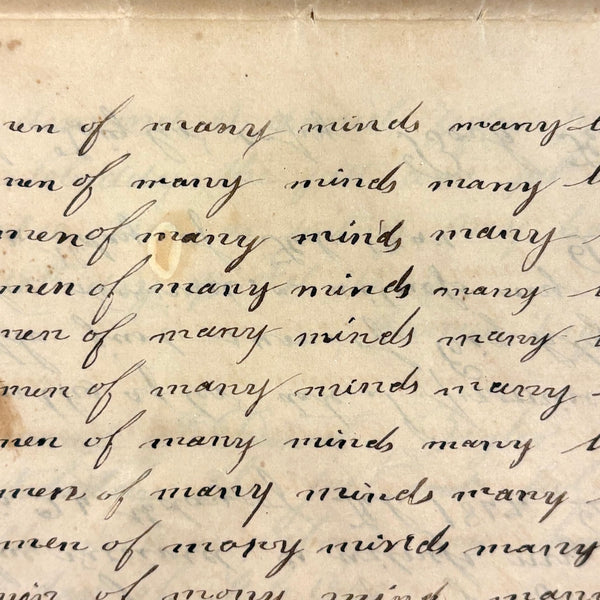 men of many minds many
men of many minds many
men of many minds many
men of many minds many
men of many minds many
men of many minds many
men of many minds many
men of many minds many
men of mony minds many
min of mony mind many